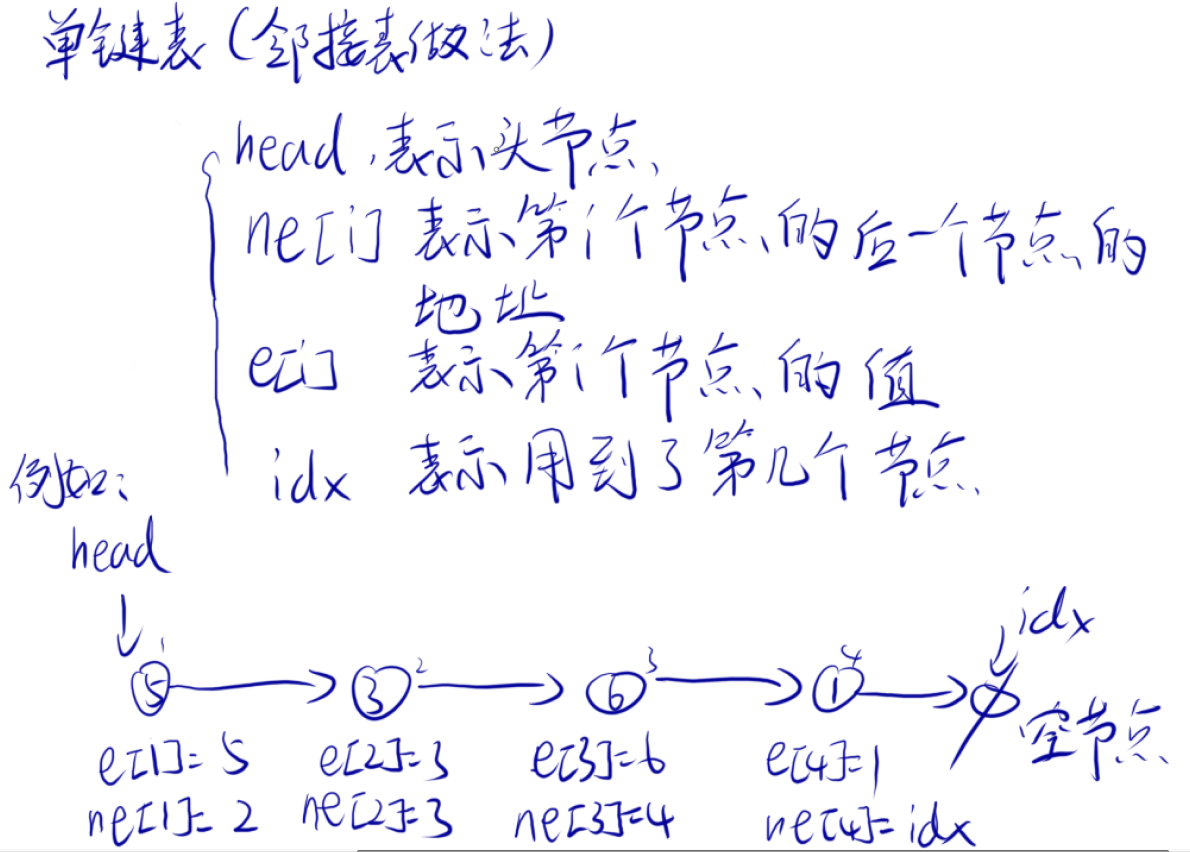 单键表(邻接表做法)
head 表示头节点
ne[i] 表示第i个节点的后一个节点的
地址
e[i] 表示第i个节点的值
idx 表示用到了第几个节点
例如:
head
idx
1 2 3 4
5 3 6 1
空节点
e[1]=5 e[2]=3 e[3]=6 e[4]=1
ne[1]=2 ne[2]=3 ne[3]=4 ne[4]=idx